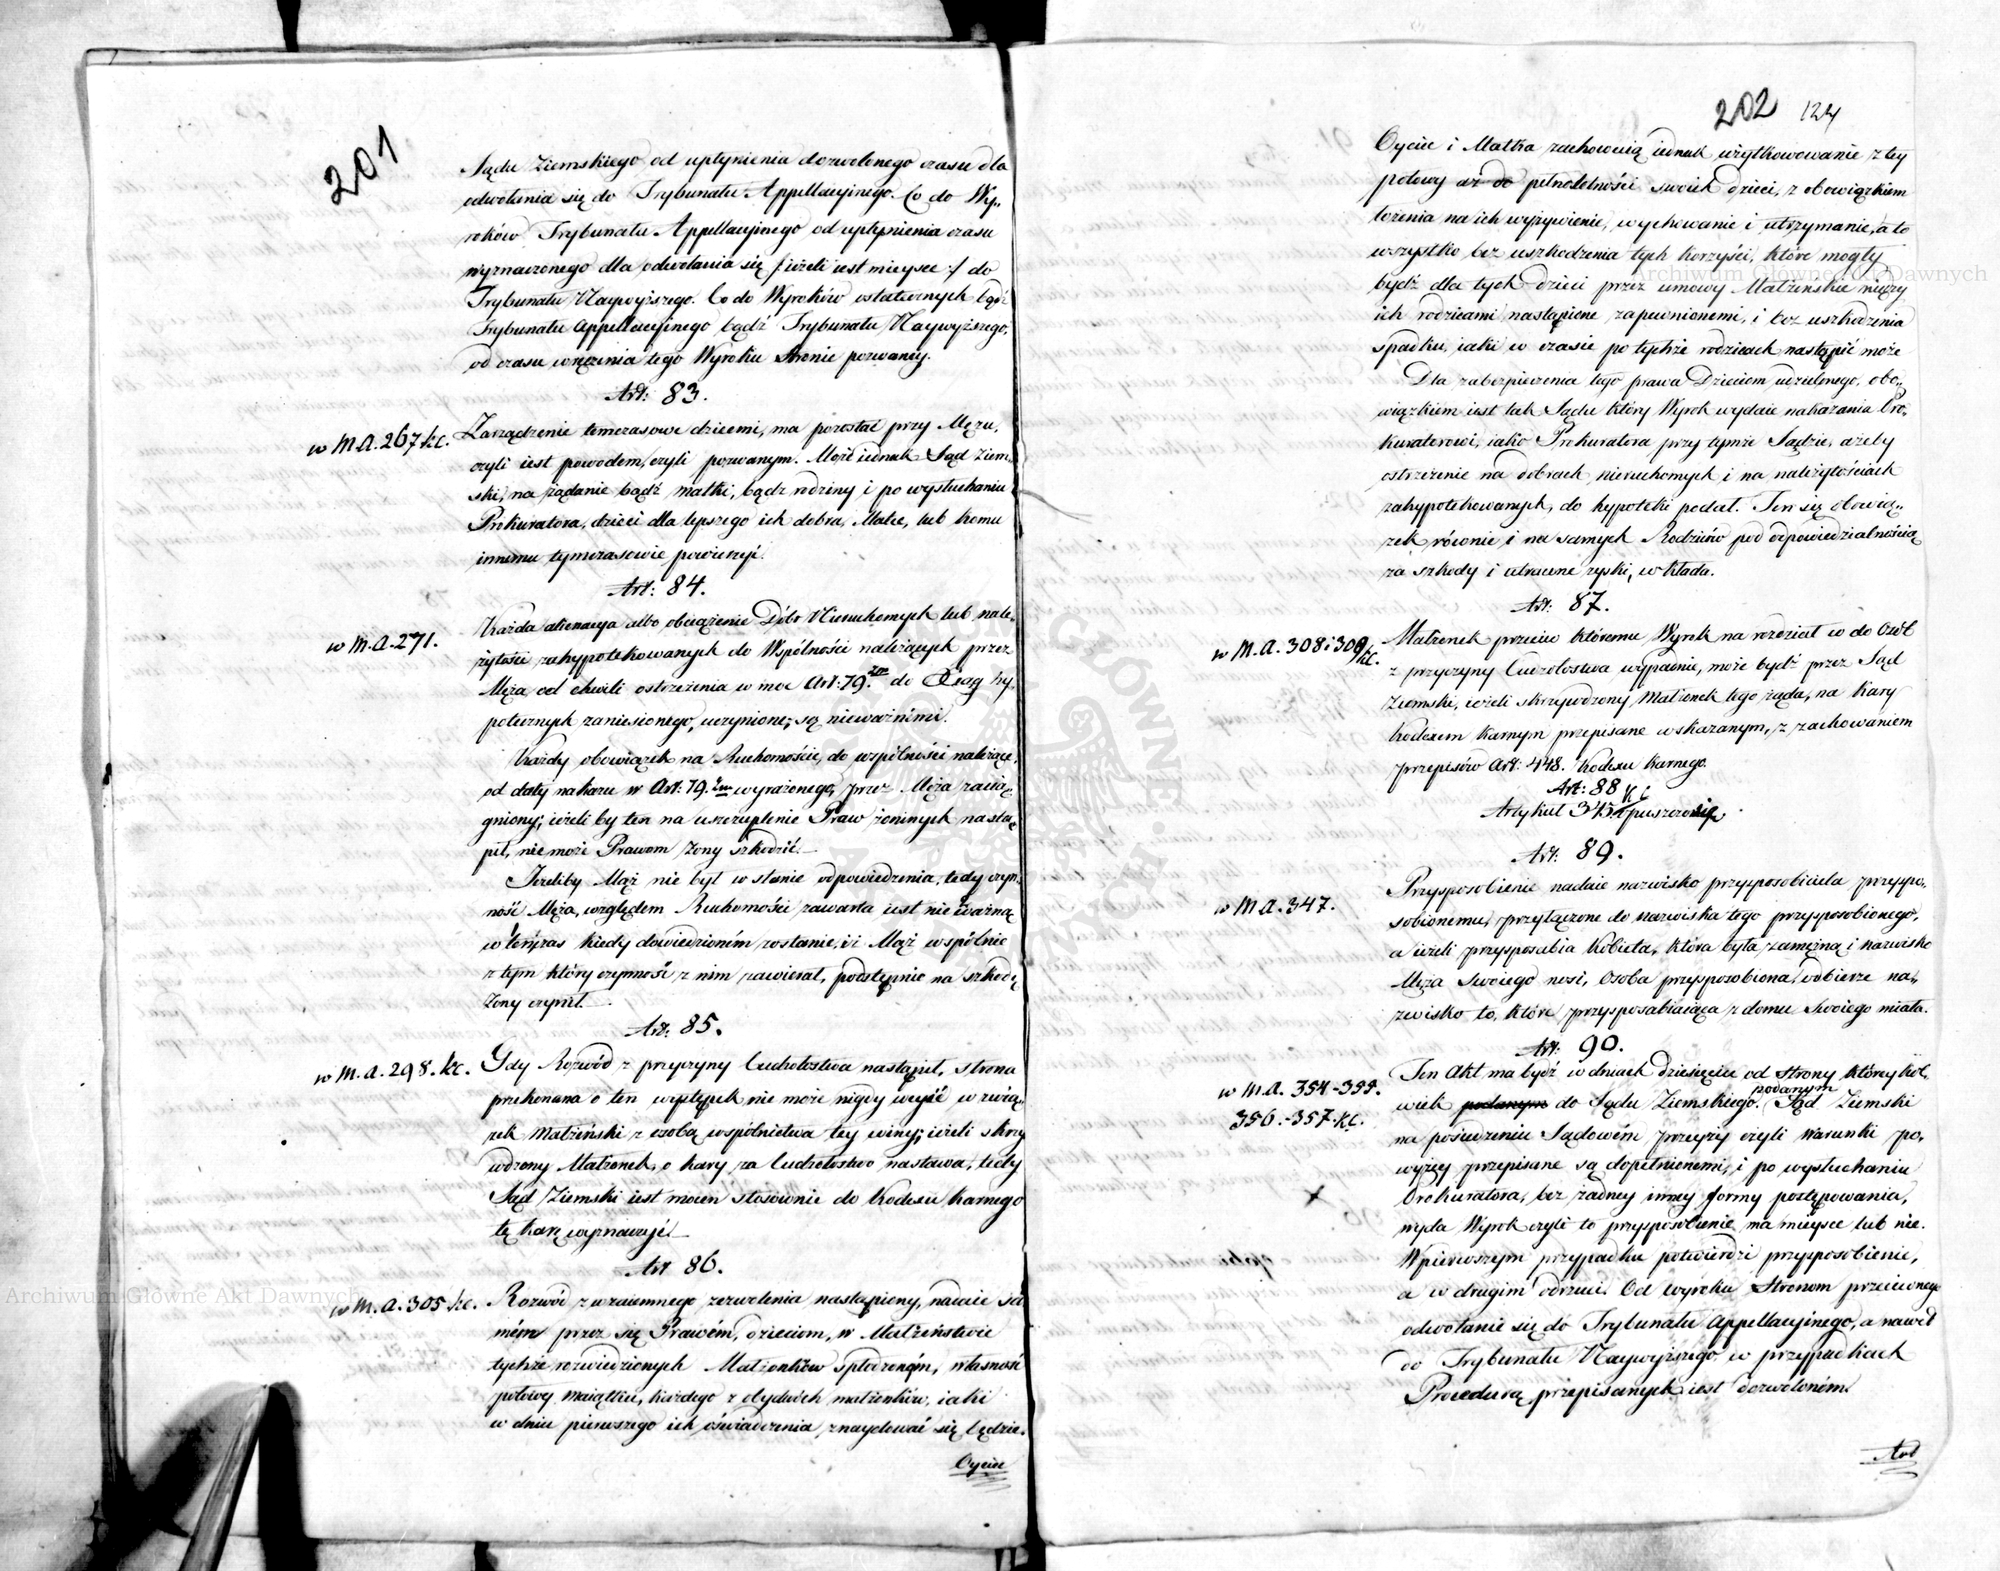 201
Sądu Ziemskiego od upłynienia dozwolonego czasu dla
odwołania się do Trybunału Appellacyinego. Co do Wy„
roków Trybunału Appellacyinego od upłynienia czasu
wyznaczonego dla odwołania się /:ieżeli iest mieysce:/ do
Trybunału Naywyższego. Co do Wyroków ostatecznych bądź
Trybunału Appellacyinego bądź Trybunału Naywyższego,
od czasu wręczenia tego Wyroku Stronie pozwaney.
Art: 83.
w M.A. 267 kc.
Zarządzenie tymczasowe dziećmi, ma pozostać przy Mężu,
czyli iest powodem, czyli pozwanym. Może iednak Sąd Ziem„
ski, na żądanie bądź matki, bądź rodziny i po wysłuchaniu
Prokuratora, dzieci dla lepszego ich dobra, Matce, lub komu
innemu tymczasowie powierzyć.
Art: 84.
w M.A. 271.
Każda alienacya albo obciążenie Dóbr Nieruchomych lub nale„
żytości zahypotekowanych do Wspólności należących przez
Męża od chwili ostrzeżenia w moc Art: 79. do Xiąg hy„
potecznych zaniesionego, uczynione, są nieważnemi.
Każdy obowiązek na Ruchomości, do wspólności należące,
od daty nakazu w Art: 79. wyrażonego, przez Męża zacią„
gniony; ieżeli by ten na uszczuplenie Praw żoninych nastą„
pił, nie może Prawom Żony szkodzić.
Jeżeliby Mąż nie był w stanie odpowiedzenia, tedy czyn„
ność Męża, względem Ruchomości zawarta iest nieważną
w tenczas kiedy dowiedzioném zostanie, iż Mąż wspólnie
z tym który czynność z nim zawierał, podstępnie na szkodę
Żony czynił.
Art: 85.
w M.A. 298. kc.
Gdy Rozwód z przyczyny Cudzołóstwa nastąpił, strona
przekonana o ten występek nie może nigdy weyść w zwią„
zek Małżeński z osobą wspólnictwa tey winy; ieżeli skrzy
wdzony Małżonek, o kary za Cudzołostwo nastawa, tedy
Sąd Ziemski iest mocen stosownie do Kodexu karnego
tę karę wyznaczyć.
Art 86.
w M.A. 305. kc.
Rozwód z wzaiemnego zezwolenia nastąpiony, nadaie sa„
mém przez się Prawém, dzieciom, w Małżeństwie
tychże rozwiedzionych Małżonków spłodzonym, własność
połowy maiątku, każdego z obydwóch małżonków, iaki
w dniu pierwszego ich oświadczenia, znaydować się będzie.
Oycie
202 124
Oyciec i Matka zachowuią iednak użytkowanie z tey
połowy aż do pełnoletności swoich dzieci, z obowiązkiem
łożenia na ich wyżywienie, wychowanie i utrzymanie, a to
wszystko bez uszkodzenia tych korzyści, które mogły
bydź dla tych dzieci przez umowy Małżeńskie między
ich rodzicami nastąpione zapewnionemi, i bez uszkodzenia
spadku, iaki w czasie po tychże rodzicach nastąpić może
Dla zabezpieczenia tego prawa Dzieciom udzielonego, obo„
wiązkiem iest tak Sądu który Wyrok wydaie nakazania Pro„
kuratorowi, iako Prokuratora przy tymże Sądzie, ażeby
ostrzeżenie na dobrach nieruchomych i na należytościach
zahypotekowanych, do hypoteki podał. Ten się obowią„
zek równie i na samych Rodziców pod odpowiedzialnością
za szkody i utracone zyski, wkłada.
Art: 87.
w M.A. 308 i 309 kc.
Małżonek przeciw któremu Wyrok na rozdział co do Osób
z przyczyny Cudzołostwa wypadnie, może bydź przez Sąd
Ziemski, ieżeli skrzywdzony Małżonek tego żąda, na kary
Kodexem karnym przepisane wskazanym, z zachowaniem
przepisów Art: 448. Kodexu karnego.
Art: 88
Artykuł 345 KC opuszcza się.
Art: 89.
w M.A. 347.
Przysposobienie nadaie nazwisko przysposobiciela przyspo„
sobionemu, przyłączone do nazwiska tego przysposobionego,
a ieżeli przysposabia kobieta, która była zamężną i nazwisko
Męża Swoiego nosi, Osoba przysposobiona odbierze na„
zwisko to, które przysposabiaiąca z domu Swoiego miała.
Art: 90.
w M.A. 354-355.
356.-357. kc.
Ten Akt ma bydź w dniach dziesięciu od Strony któreykol„
wiek podanym do Sądu Ziemskiego. Sąd Ziemski
podanym
na posiedzeniu Sądowém przeyrzy czyli warunki po„
wyżey przepisane są dopełnionemi, i po wysłuchaniu
Prokuratora, bez żadney inney formy postępowania,
wyda Wyrok czyli to przysposobienie ma mieysce lub nie.
W pierwszym przypadku potwierdzi przysposobienie,
a w drugim odrzuci. Od wyroku Stronom przeciwnego
odwołanie się do Trybunału Appellacyinego, a nawet
do Trybunału Naywyższego w przypadkach
Procedurą przepisanych iest dozwoloném.
Art
Archiwum Główne Akt Dawnych
Archiwum Główne Akt Dawnych